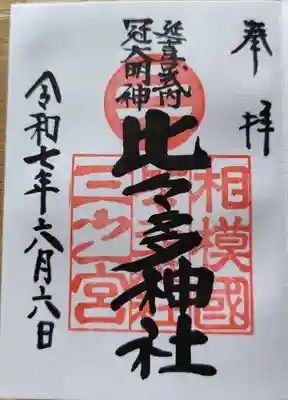 奉拝
延喜式内
冠大明神
比々多神社
令和七年六月六日
相模國
三之宮